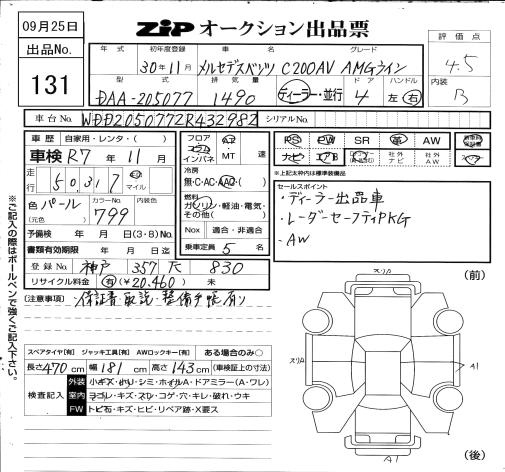 09月25日
ZIP オークション出品票
出品No.
131
年式 初年度登録 車名 グレード
30年11月 メルセデスベンツ C200AV AMGライン
型式 排気量 ドア ハンドル
DAA-205077 1490 ディーラー・並行 4 左・右
評価点
4.5
内装
B
車台No. WDD2050772R432982 シリアルNo.
車歴 自家用・レンタ・( )
車検 R7年11月
走行 50,317 km マイル
色 パール カラーNo. 799 内装色
(元色)
予備検 年 月 日(3・8)No.
書類有効期限 年 月 日迄
登録No. 神戸 357 830
リサイクル料金 有(¥20,460) 未
フロア コラム インパネ AT MT 速
冷房
無・C・AC・AAC・( )
燃料
ガソリン・軽油・電気・その他( )
Nox 適合・非適合
乗車定員 5 名
PS PW SR 革 AW
ナビ エアB 社外ナビ 社外AW
※上記太わす内は標準装備品
セールスポイント
・ディーラー出品車
・レーダーセーフティPKG
・AW
(注意事項)・保証書・取説・整備手帳有り
※ご記入の際はボールペンで強くご記入下さい。
スペアタイヤ【有】 ジャッキ工具【有】 AWロックキー【有】 ある場合のみ○
長さ 470 cm 幅 181 cm 高さ 143 cm (車検証上の寸法)
検査記入
外装 小キズ・ヘリ・シミ・ホイルA・ドアミラー(A・ワレ)
室内 ヨゴレ・キズ・スレ・コゲ・穴・キレ・破れ・ウキ
FW トビ石・キズ・ヒビ・リペア跡・X要ス
(前)
スリA
スリA
A1
A1
(後)